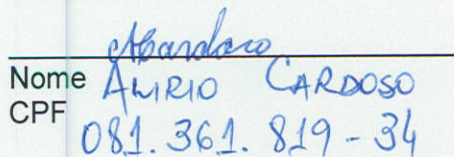 Nome ALIRIO CARDOSO
CPF 081.361.819-34